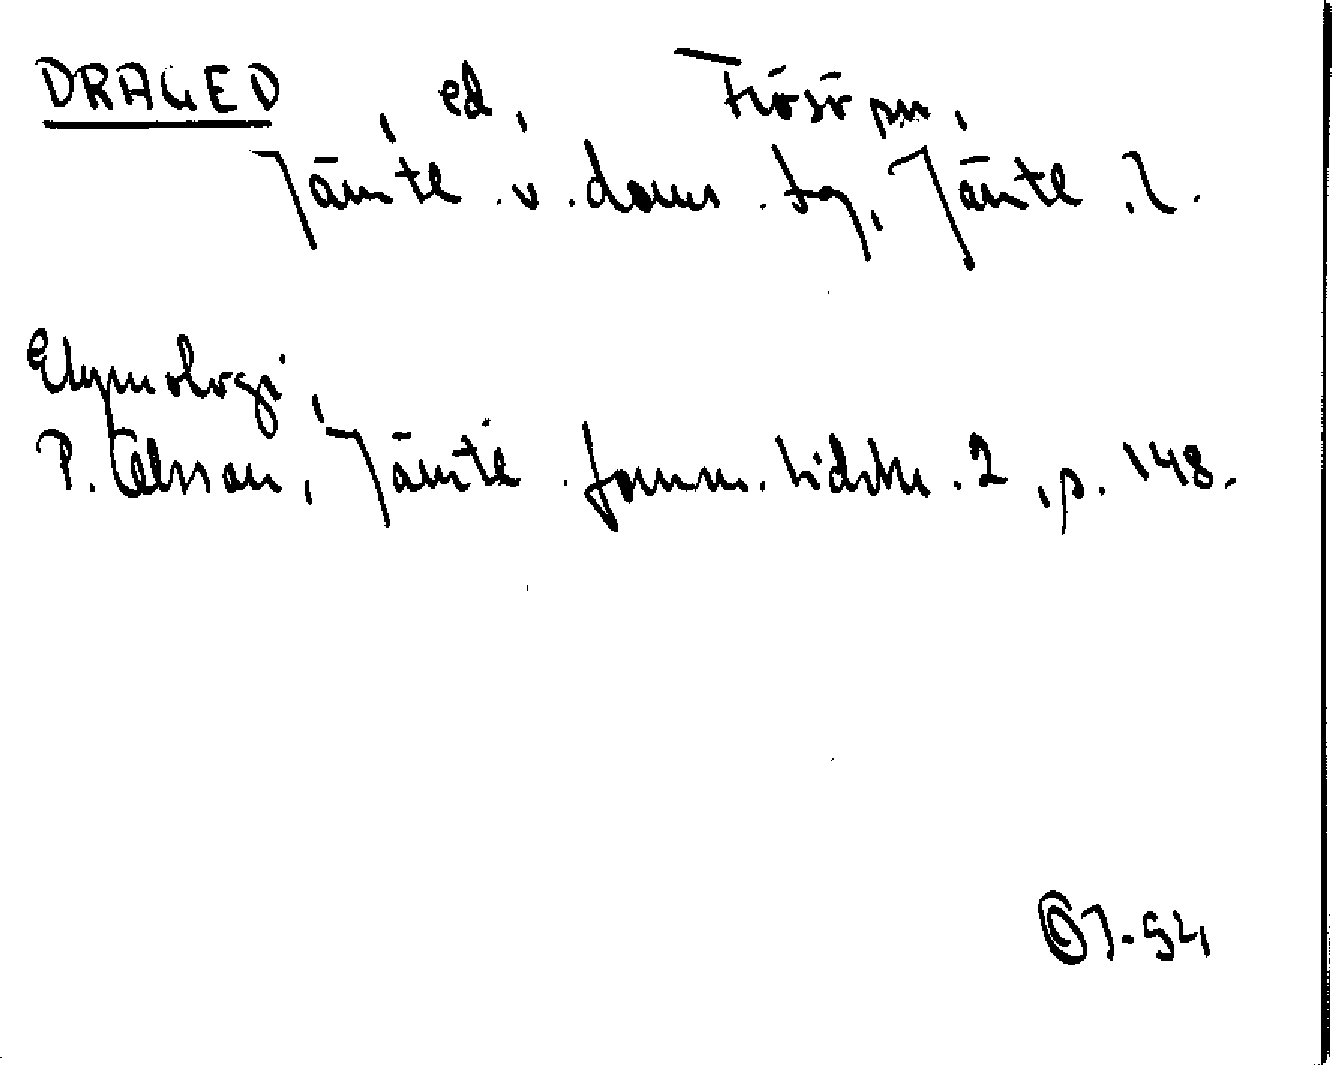 DRAGED, ed, Frösö pm,
Jämtl. v. doms. tg, Jämtl. l.
Etymologi,
P. Olsson, Jämtl. fornm. tidskr. 2, p. 148.